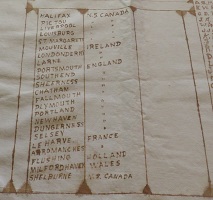 HALIFAX N.S CANADA
PICTOU "
LIVERPOOL "
LOUISBURG "
ST. MARGARETS "
MOUVILLE IRELAND
LONDONDERRY "
LARNE "
PORTSMOUTH ENGLAND
SOUTHEND "
SHEERNESS "
CHATHAM "
FALLMOUTH "
PLYMOUTH "
PORTLAND "
NEW HAVEN "
DUNGERNESS "
SELSEY "
LE HARVE FRANCE
ARROMANCHES "
FLUSHING HOLLAND
MILFORDHAVEN WALES
SHELBURNE N.S. CANADA